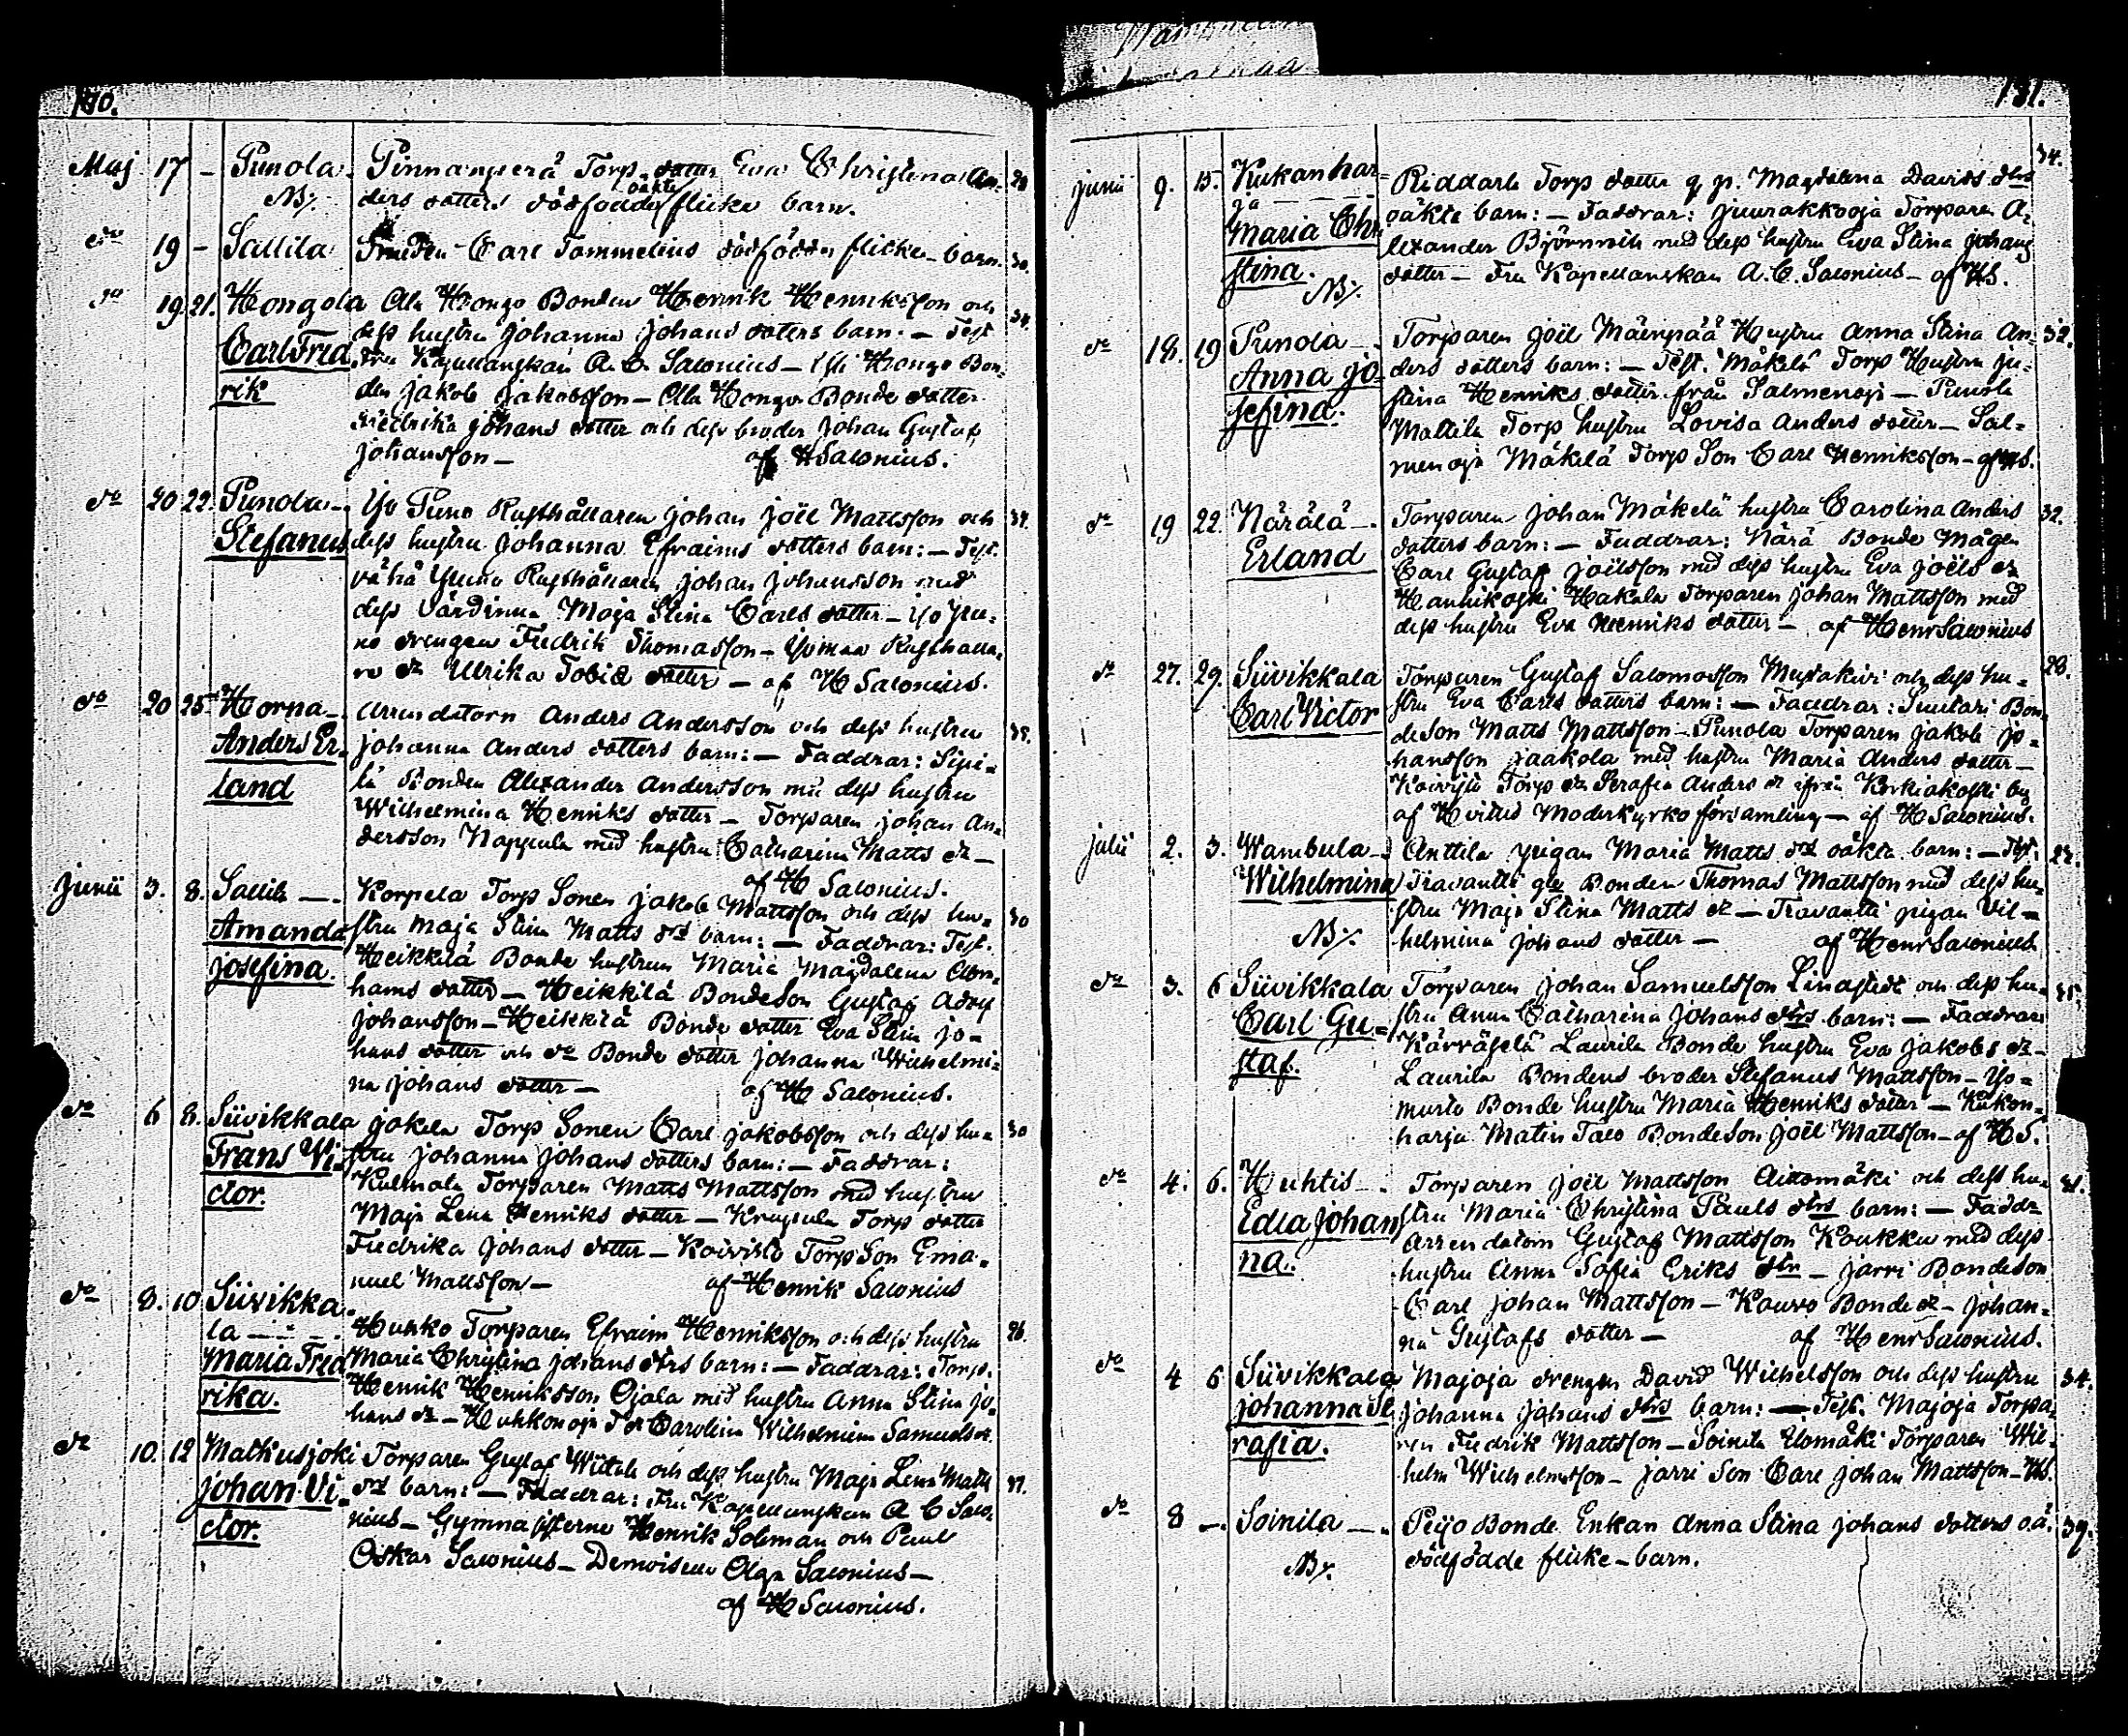 130.
Maj 17 - Punola. Pinnanperä Torp dotter Eva Christina An- 28
NB/. ders dotters dödfödda oäkta flicke barn.
do 19 - Sallila Carl Tammelins dödfödda flicke-barn. 30.
do 19. 21. Hongola Ala Hongo Bonden Henrik Henriksson och 34.
dess hustru Johanna Johans dotters barn. - Test.
Carl Fred- Fru Kapellanskan A. C. Salonius - Hongo Bon-
rik den Jakob Jakobsson - Ala Hongo Bonde dotter
Fredrika Johans dotter och dess broder Johan Gustaf
Johansson - af H Salonius.
do 20 22. Punola -. Yjo Puno Rusthållaren Johan Joël Mattsson och 34.
Stefanus dess hustru Johanna Efraims dotters barn: - Test.
vähä Rusthållaren Johan Johansson med
dess värdinna Maja Stina Carls dotter - Yjo Pu-
no drengen Fredrik Thomasson - Rusthålla-
re dr Ulrika Tobia dotter - af H Salonius.
do 20 25. Horna -. Arrendatorn Anders Andersson och dess hustru 35.
Anders Er- Johanna Anders dotters barn: - Faddrar: Sipi-
land lä Bonden Alexander Andersson med dess hustru
Wilhelmina Henriks dotter - Torparen Johan An-
dersson Nappula med hustru Catharina Matts dr -
af H Salonius.
Junii 3. 8. Sallila -. Korpela Torp Sonen Jakob Mattsson och dess hu- 30
Amanda stru Maja Stina Matts drs barn: - Faddrar: Test.
Josefina. Heikkilä Bonde hustrun Maria Magdalena Abra-
hams dotter - Heikkilä Bondeson Gustaf Adolf
Johansson - Heikkilä Bonde dotter Eva Stina Jo-
hans dotter och do Bonde dotter Johanna Wilhelmi-
na Johans dotter - af H Salonius.
do 6 8. Siivikkala Jokela Torp Sonen Carl Jakobsson och dess hu- 30
Frans Vi- stru Johanna Johans dotters barn: - Faddrar:
ctor. Kulmala Torparen Matts Mattsson med hustru
Maja Lena Henriks dotter - Krupula Torp dotter
Fredrika Johans dotter - Koivisto Torp Son Ema-
nuel Mattsson - af Henrik Salonius
do 8. 10 Siivikka-
la - - - Huhko Torparen Efraim Henriksson och dess hustru 26.
Maria Fred- Maria Christina Johans dtrs barn: - Faddrar: Torp.
rika. Henrik Henriksson Ojala med hustru Anna Stina Jo-
hans dr - Huhkonoja T dr Carolina Wilhelmina Samuels dr
do 10. 12 Matkusjoki Torparen Gustaf Wittala och dess hustru Maja Lena Matts 37.
Johan Vi- drs barn: - Faddrar: Fru Kapellanskan A C Salo-
ctor. nius - Gymnasisterne Henrik Soloman och Paul
Oskar Salonius - Demoiselle Olga Salonius -
af H Salonius.
131.
Junii 9. 15. Kukonhar- Riddarla Torp dotter q. p. Magdalena Davids dtrs 34.
ja - - - oäkta barn: - Faddrar: Juurakkooja Torparen A-
Maria Chri- lexander Björnmik med dess hustru Eva Stina Johans
stina. dotter - Fru Kapellanskan A. C. Salonius - af HS.
NB/.
do 18. 19 Punola -. Torparen Joël Mäenpää Hustru Anna Stina An- 32.
Anna Jo- ders dotters barn: - Test. Mäkelä Torp Hustru Ju-
sefina. stina Henriks dotter från Salmenoja - Punola
Mattila Torp hustru Lovisa Anders dotter - Sal-
menoja Mäkelä Torp Son Carl Henriksson - af HS.
do 19 22. Närälä -. Torparen Johan Mäkelä hustru Carolina Anders 32.
Erland dotters barn: - Faddrar: Närä Bonde Mågen
Carl Gustaf Joëlsson med dess hustru Eva Joëls dr
Hannikoski Hakala Torparen Johan Mattsson med
dess hustru Eva Henriks dotter - af Henr Salonius
do 27. 29. Siivikkala Torparen Gustaf Salomosson Mustakivi och dess hu- 28.
Carl Victor stru Eva Carls dotters barn: - Faddrar: Suutari Bon-
deson Matts Mattsson - Punola Torparen Jakob Jo-
hansson Jaakola med hustru Maria Anders dotter -
Koivisto Torp dr Serafia Anders dr ifrån Korkiakoski by
af Hvittis Moderkyrko församling - af H Salonius.
Julii 2. 3. Wambula -. Anttila pigan Maria Matts drs oäkta barn: - Test. 27.
Wilhelmina Travantti Bonden Thomas Mattsson med dess hu-
stru Maja Stina Matts dr - Travantti pigan Vil-
NB/. helmina Johans dotter - af Henr Salonius
do 3. 6 Siivikkala Torparen Johan Samuelsson Lindstedt och dess hu- 35.
Carl Gu- stru Anna Catharina Johans dtrs barn: - Faddrar
staf. Kärväselä Laurila Bonde hustru Eva Jakobs dr -
Laurila Bondens broder Stefanus Mattsson - Yo-
murto Bonde hustru Maria Henriks dotter - Kukon-
harja Matin Talo Bondeson Joël Mattsson - af H S.
do 4. 6. Huhtis -. Torparen Joël Mattsson Aittomäki och dess hu- 31.
Edla Johan- stru Maria Christina Pauls dtrs barn: - Faddr
na. Arrendatorn Gustaf Mattsson Koukku med dess
hustru Anna Sofia Eriks dtr - Jarri Bondeson
Carl Johan Mattsson - Kouvo Bonde dr - Johan-
na Gustafs dotter - af Henr Salonius.
do 4 6 Siivikkala Majoja drengen David Wilhelsson och dess hustru 34.
Johanna Se- Johanna Johans dtrs barn: - Test. Majoja Torpa-
rafia. ren Fredrik Mattsson - Soinila Elomäki Torparen Wil-
helm Wilhelmsson - Jarri Son Carl Johan Mattsson - HS.
do 8 -. Soinila -. Peijo Bonde Enkan Anna Stina Johans dotters oä. 39.
NB/. dödfödde flicke-barn.